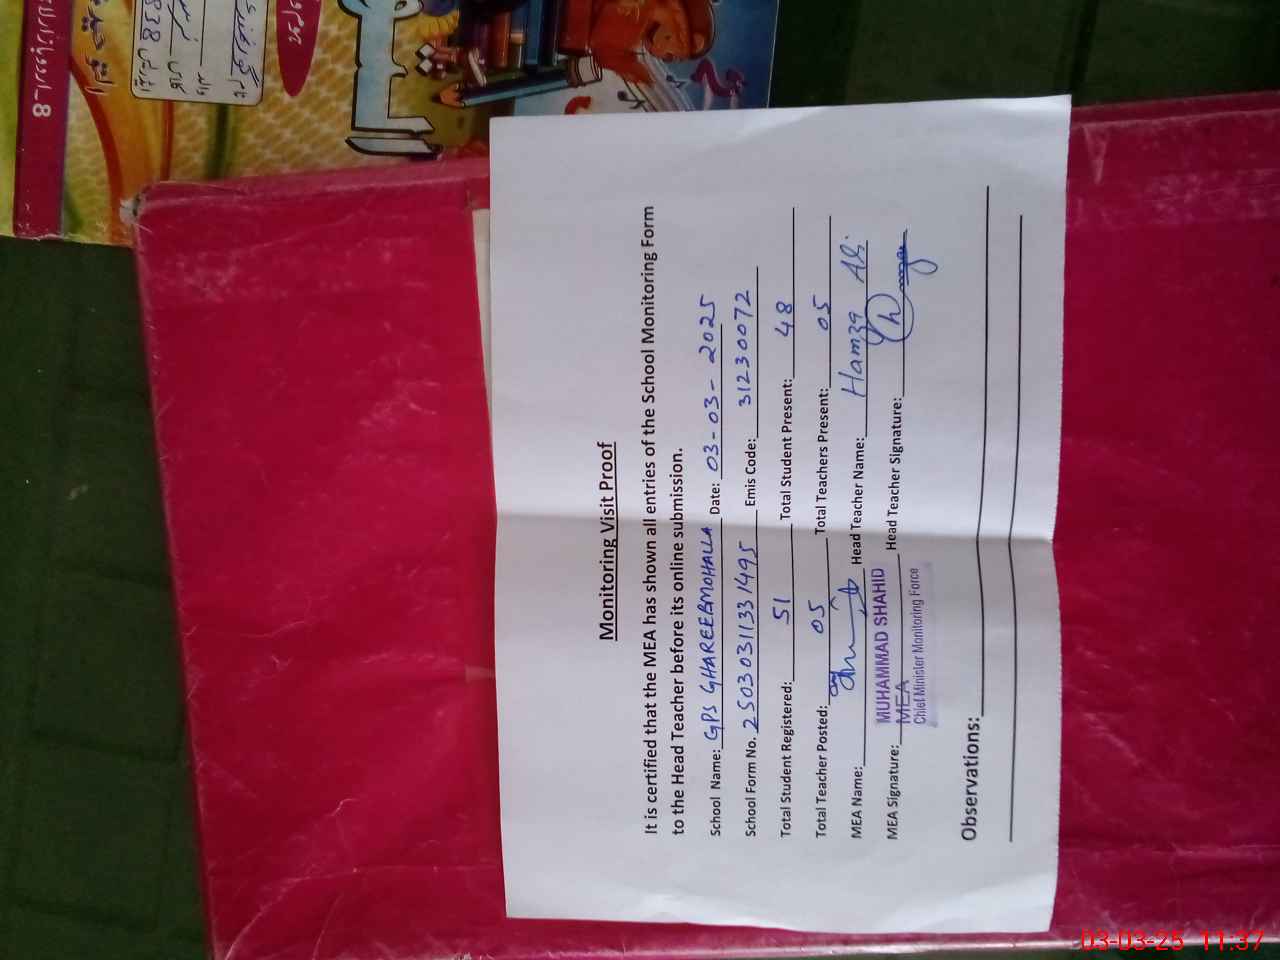 Monitoring Visit Proof
It is certified that the MEA has shown all entries of the School Monitoring Form
to the Head Teacher before its online submission.
School Name: GPS GHAREEBMOHALLA Date: 03-03-2025
School Form No. 25030311331495 Emis Code: 31230072
Total Student Registered: 51 Total Student Present: 48
Total Teacher Posted: 05 Total Teachers Present: 05
MEA Name: Head Teacher Name: Hamza Ali
MEA Signature: Head Teacher Signature:
MUHAMMAD SHAHID
MEA
Chief Minister Monitoring Force
Observations:
03-03-25 11:37